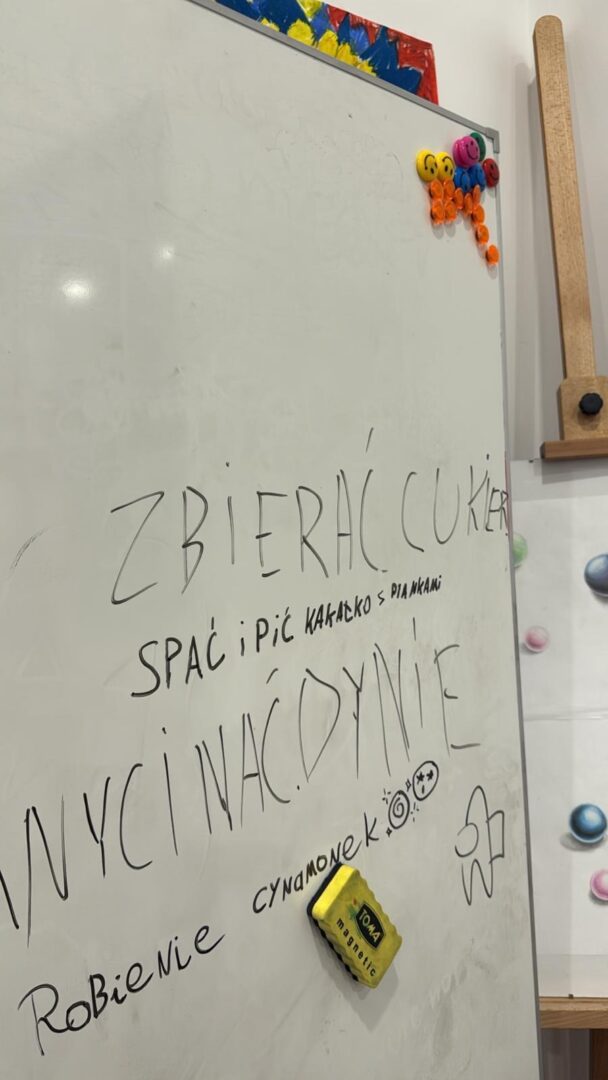 ZBIERAĆ CUKIER
SPAĆ i PIĆ KAKAŁKO s PIANKAMI
WYCINAĆ DYNIE
RoBieNie CYNaMONeK
TOMA
magnetic